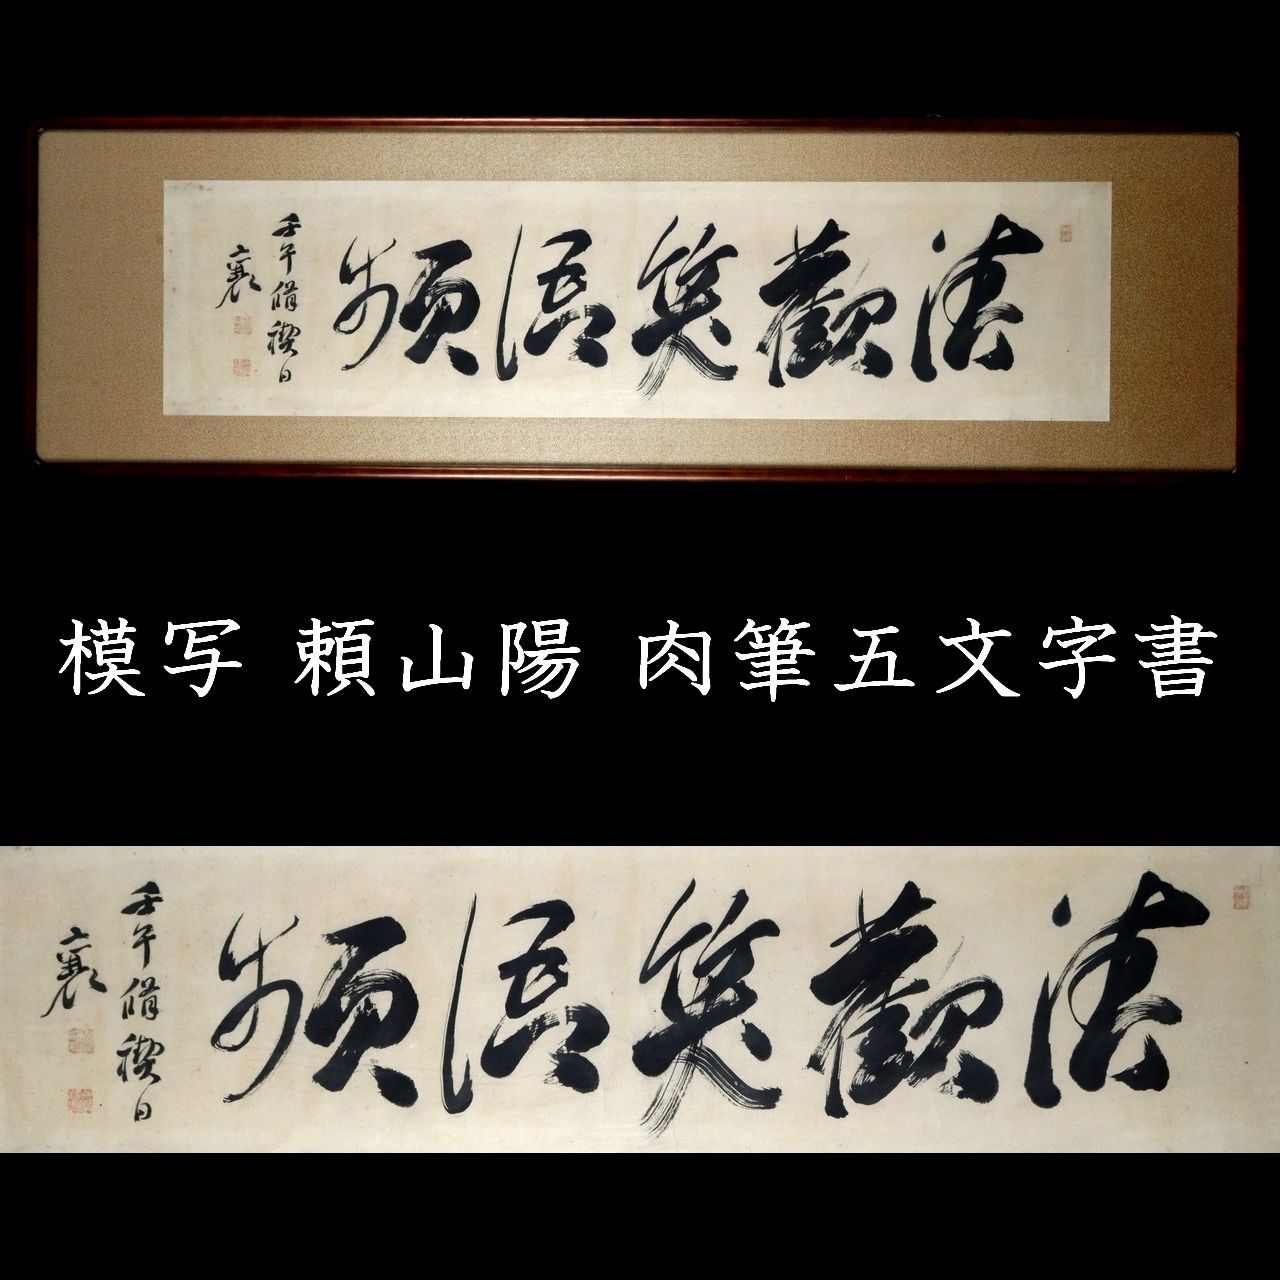 清歡笑語頻
壬午脩禊日
襄
模写 頼山陽 肉筆五文字書
清歡笑語頻
壬午脩禊日
襄